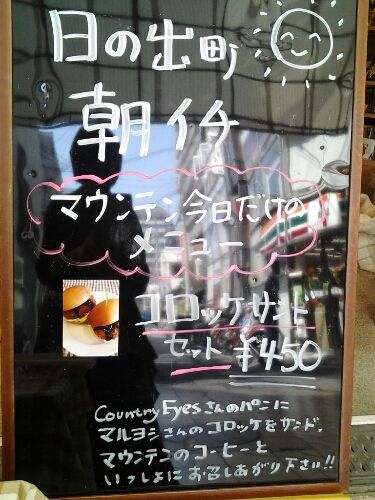 日の出町
朝市
マウンテン今日だけの
メニュー
コロッケサンド
セット ¥450
Country Eyesさんのパンに
マルヨシさんのコロッケをサンド.
マウンテンのコーヒーと
いっしょにお召しあがり下さい!!